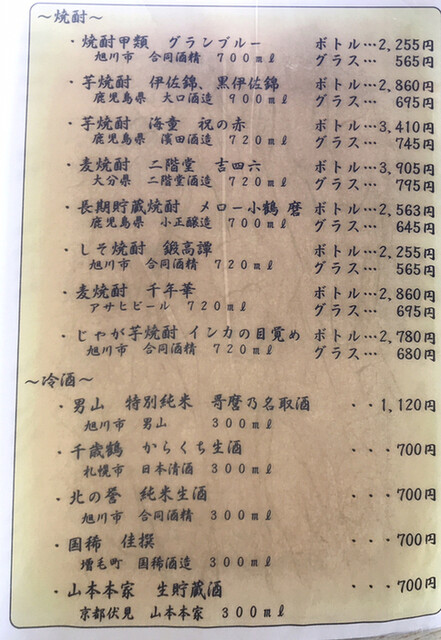 ～焼酎～
・焼酎甲類　グランブルー　ボトル…2,255円
旭川市　合同酒精　700mℓ　グラス…　565円
・芋焼酎　伊佐錦、黒伊佐錦　ボトル…2,860円
鹿児島県　大口酒造　900mℓ　グラス…　695円
・芋焼酎　海童　祝の赤　ボトル…3,410円
鹿児島県　濱田酒造　720mℓ　グラス…　745円
・麦焼酎　二階堂　吉四六　ボトル…3,905円
大分県　二階堂酒造　720mℓ　グラス…　795円
・長期貯蔵焼酎　メロー小鶴　磨　ボトル…2,563円
鹿児島県　小正醸造　700mℓ　グラス…　645円
・しそ焼酎　鍛高譚　ボトル…2,255円
旭川市　合同酒精　720mℓ　グラス…　565円
・麦焼酎　千年華　ボトル…2,860円
アサヒビール　720mℓ　グラス…　695円
・じゃが芋焼酎　インカの目覚め　ボトル…2,780円
旭川市　合同酒精　720mℓ　グラス…　680円
～冷酒～
・男山　特別純米　哥麿乃名取酒　・・1,120円
旭川市　男山　300mℓ
・千歳鶴　からくち生酒　・・・700円
札幌市　日本清酒　300mℓ
・北の誉　純米生酒　・・・700円
旭川市　合同酒精　300mℓ
・国稀　佳撰　・・・700円
増毛町　国稀酒造　300mℓ
・山本本家　生貯蔵酒　・・・700円
京都伏見　山本本家　300mℓ